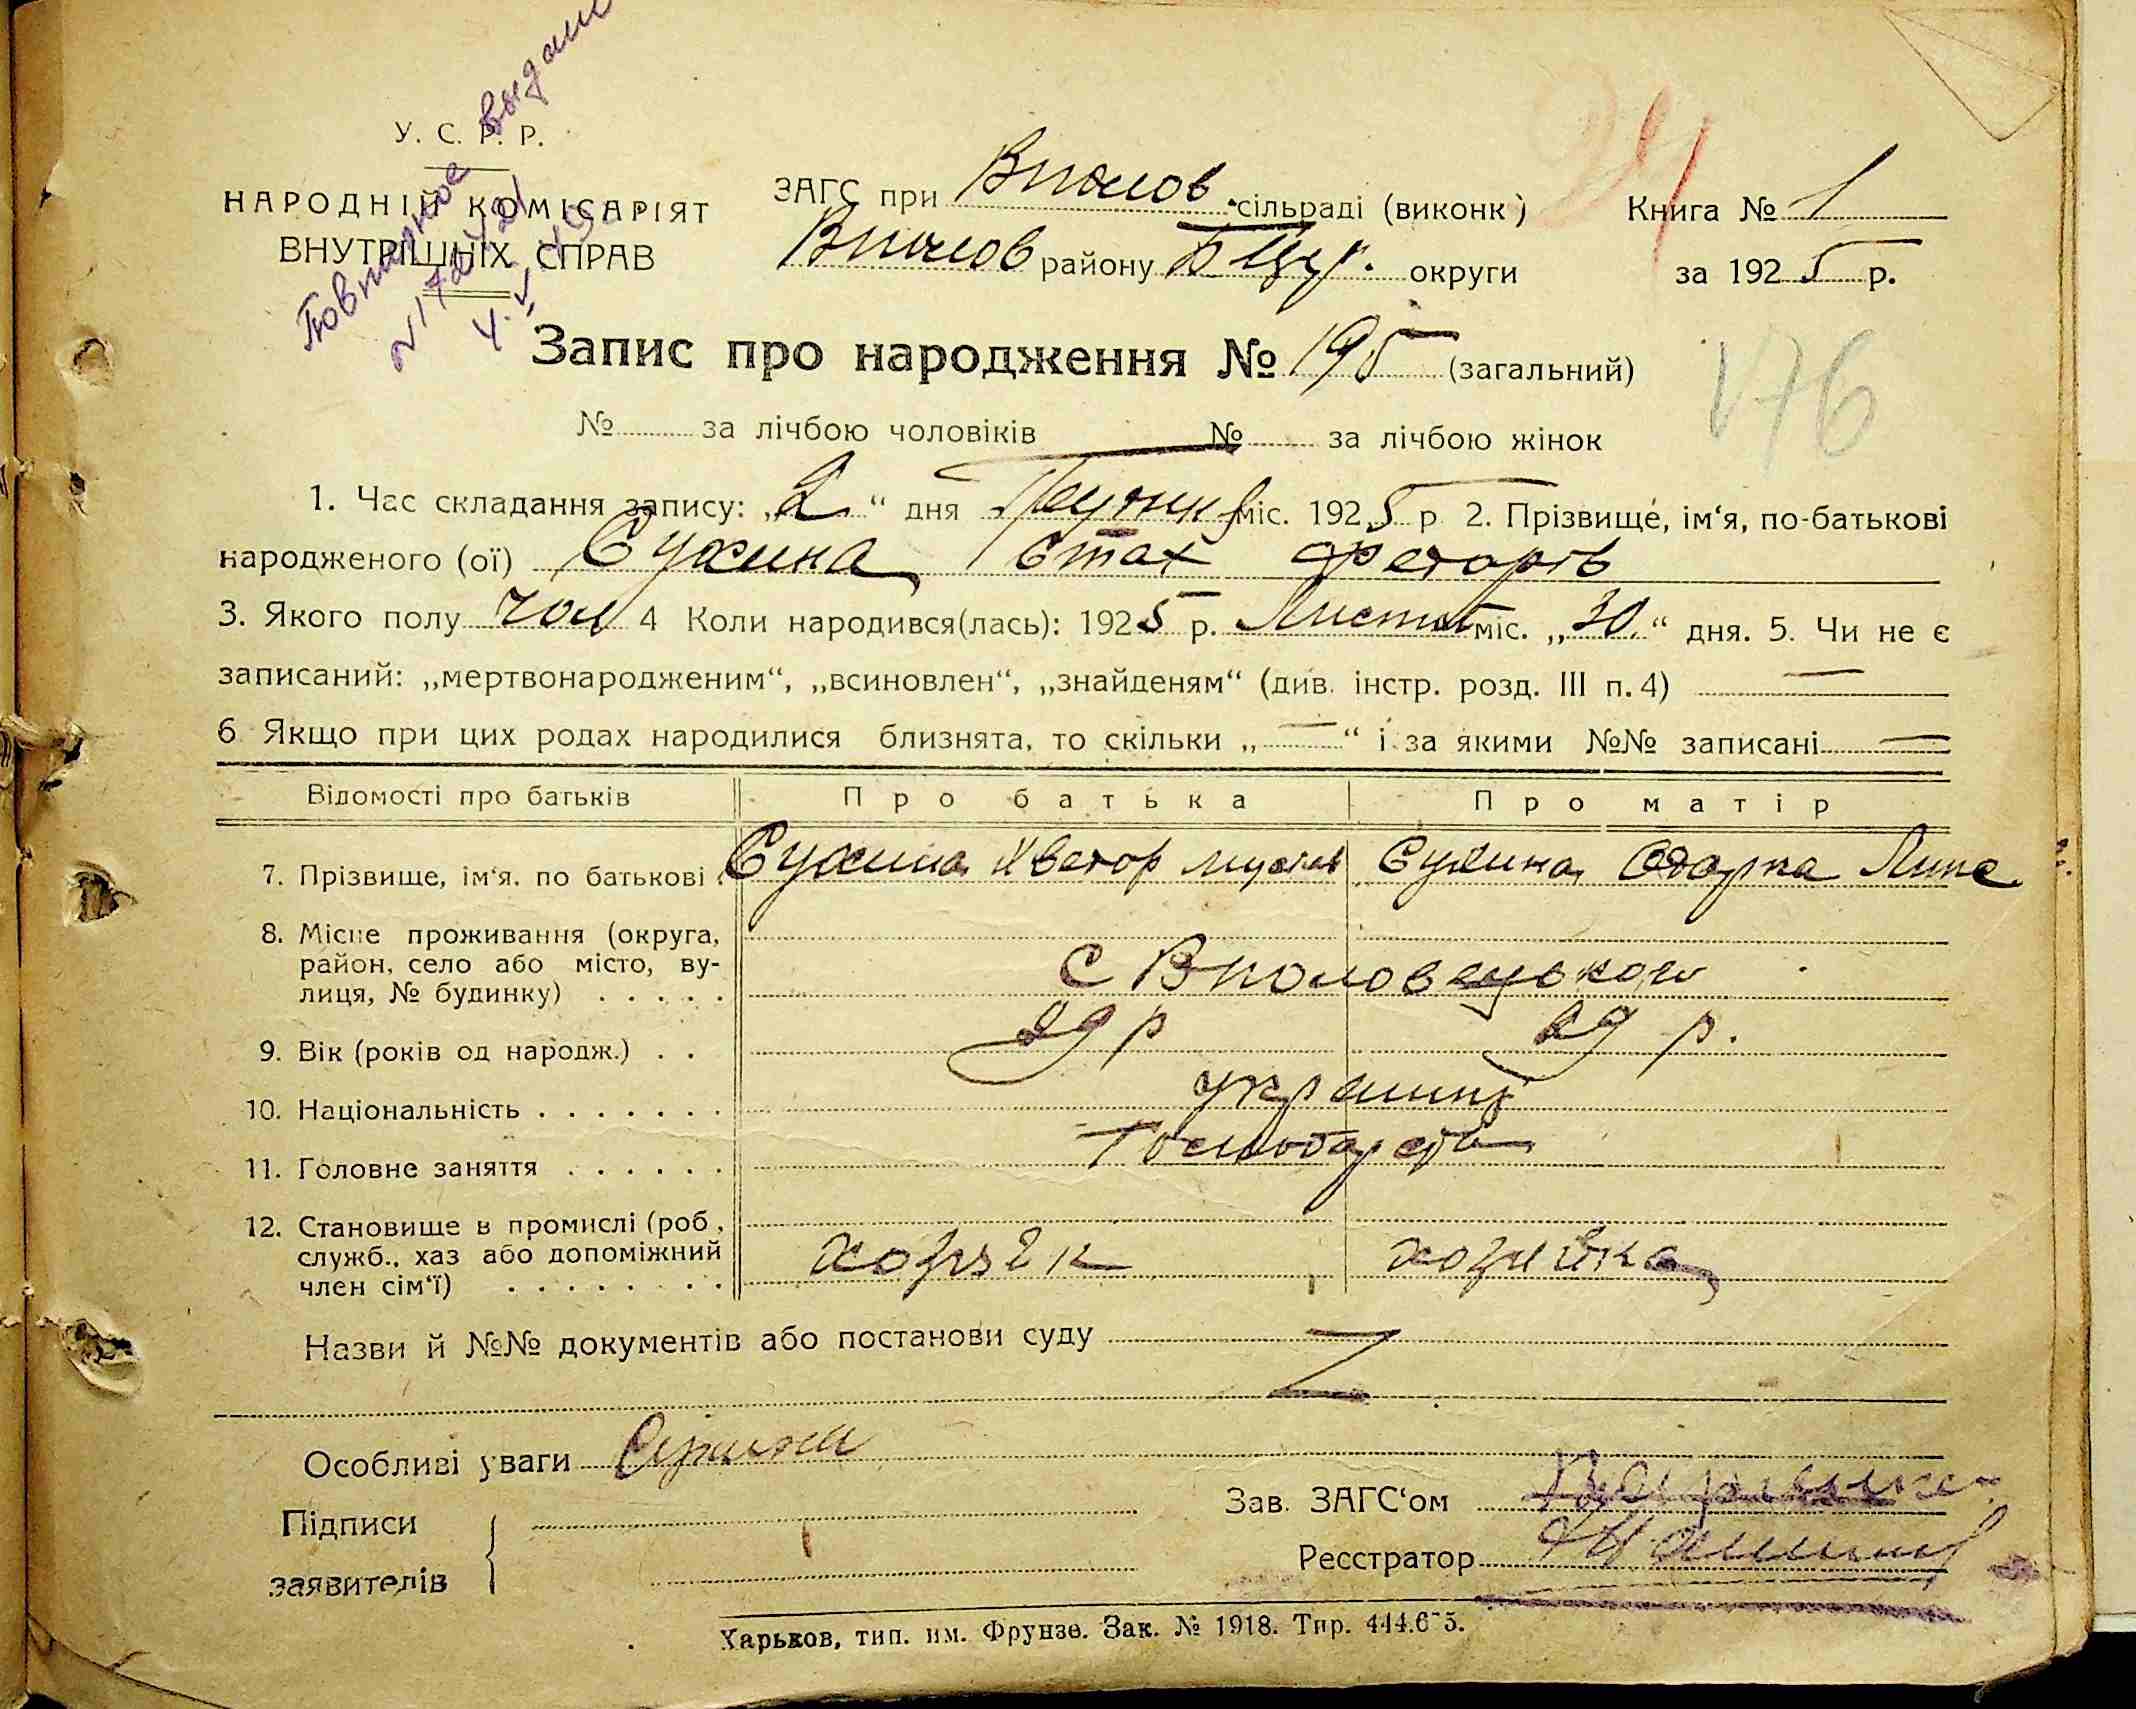 Повторное выдано
У. С. Р. Р.
НАРОДНІЙ КОМІСАРІЯТ
ВНУТРІШНІХ СПРАВ
ЗАГС при Вполов. сільраді (виконк)
Вполов району Б Церк. округи
Книга № 1
за 1925 р.
Запис про народження № 195 (загальний)
176
№ за лічбою чоловіків № за лічбою жінок
1. Час складання запису: „2“ дня Грудня міс. 1925 р 2. Прізвище, ім‘я, по-батькові
народженого (ої) Сухина Стах Федорів
3. Якого полу чол 4 Коли народився(лась): 1925 р. Листоп міс. „30.“ дня. 5. Чи не є
записаний: „мертвонародженим“, „всиновлен“, „знайденям“ (див. інстр. розд. III п. 4) —
6 Якщо при цих родах народилися близнята, то скільки „—“ і за якими №№ записані —
Відомості про батьків Про батька Про матір
7. Прізвище, ім‘я. по батькові. Сухина Хведор Сухина Одарка
8. Місце проживання (округа,
район, село або місто, ву-
лиця, № будинку) . . . . . С Вполовецького
9. Вік (років од народж.) . . 29 р 29 р.
10. Національність . . . . . . . україні
11. Головне заняття . . . . . . Господарств
12. Становище в промислі (роб,
служб., хаз або допоміжний
член сім‘ї) . . . . . . . . хозяїн хозяйка
Назви й №№ документів або постанови суду
Особливі уваги
Підписи
заявителів
Зав. ЗАГС‘ом
Реєстратор
Харьков, тип. им. Фрунзе. Зак. № 1918. Тир. 444.675.